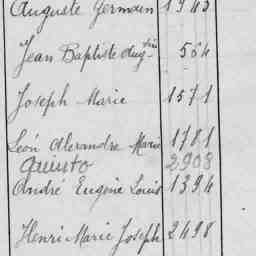 Auguste Germain 1343
Jean Baptiste Aug-tin 564
Joseph Marie 1571
Léon Alexandre Marie 1781
Quisto 2908
André Eugène Louis 1394
Henri Marie Joseph 2498